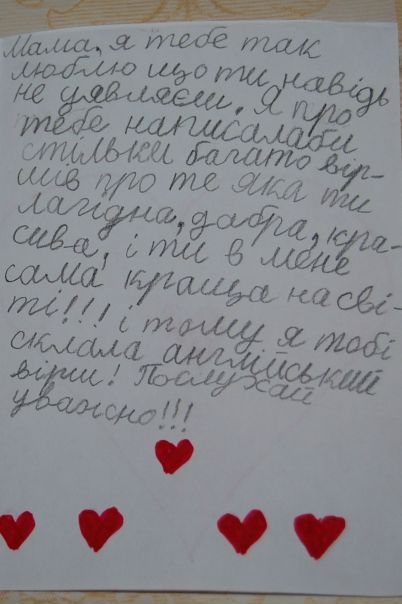 Мама, я тебе так
люблю що ти навідь
не уявляєш. Я про
тебе написалаби
стільки багато вір-
шів про те яка ти
лагідна, добра, кра-
сива, і ти в мене
сама краща на сві-
ті!!! і тому я тобі
склала англійський
вірш! Послухай
уважно!!!